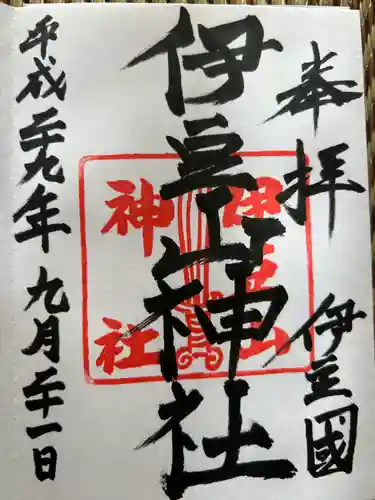 奉拝 伊豆國
伊豆山神社
伊豆山
神社
平成二十九年九月二十一日